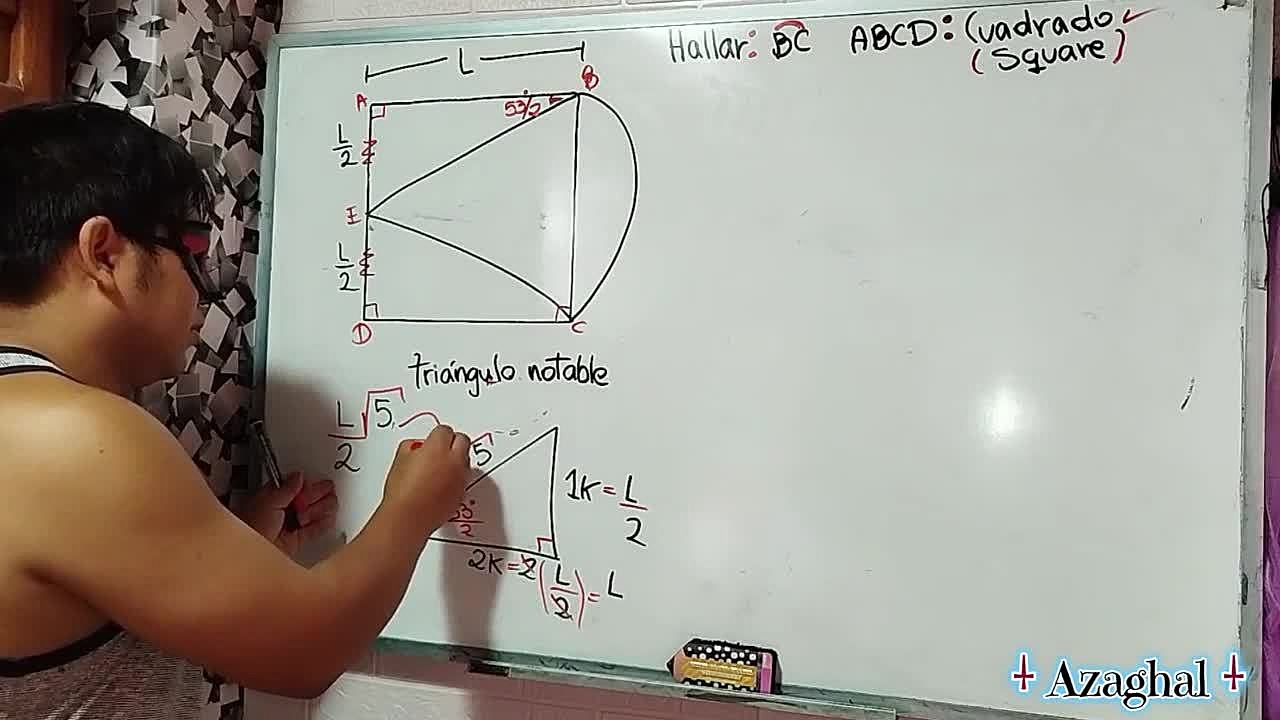 Hallar: BC ABCD: Cuadrado
(Square)
L
A B
53°/2
L/2
E
L/2
D C
triángulo notable
L/2 √5
5
1K = L/2
53°/2
2K = 2(L/2) = L
Azaghal